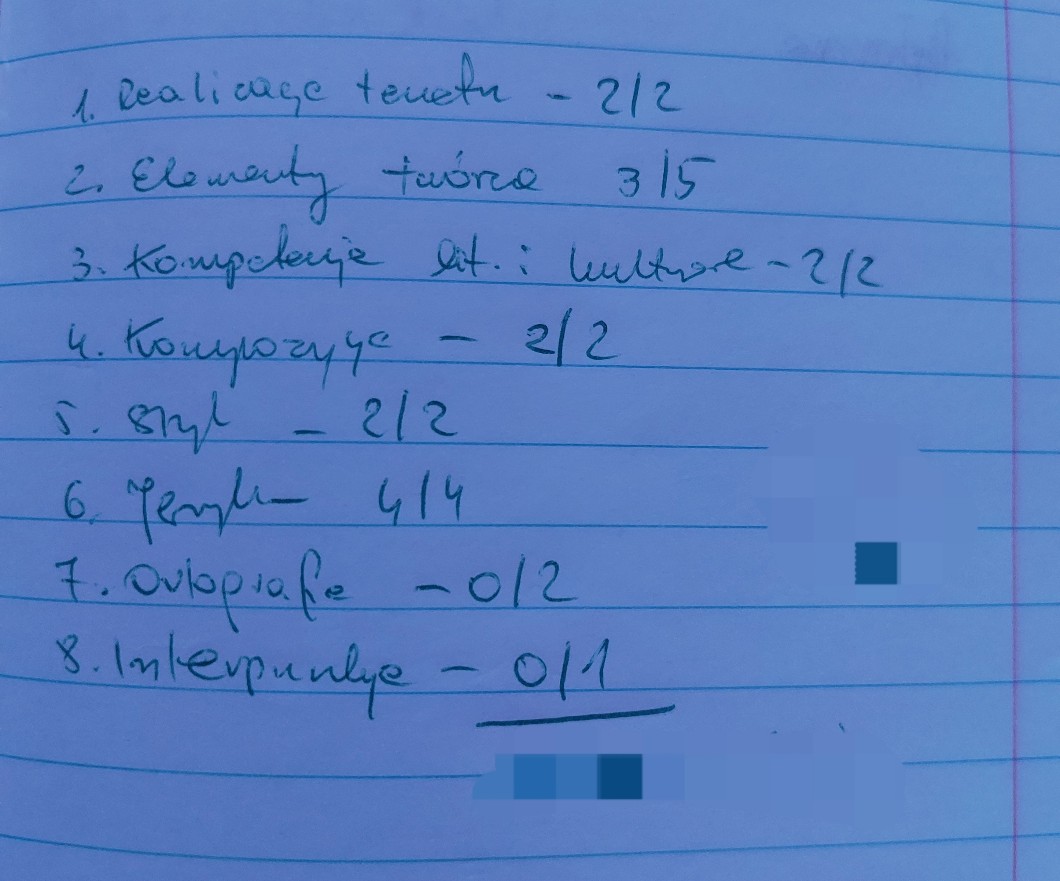 1. Realizacja tematu - 2/2
2. Elementy twórcze 3/5
3. Kompetencje lit. i kulturowe - 2/2
4. Kompozycja - 2/2
5. Styl - 2/2
6. Język - 4/4
7. Ortografia - 0/2
8. Interpunkcja - 0/1